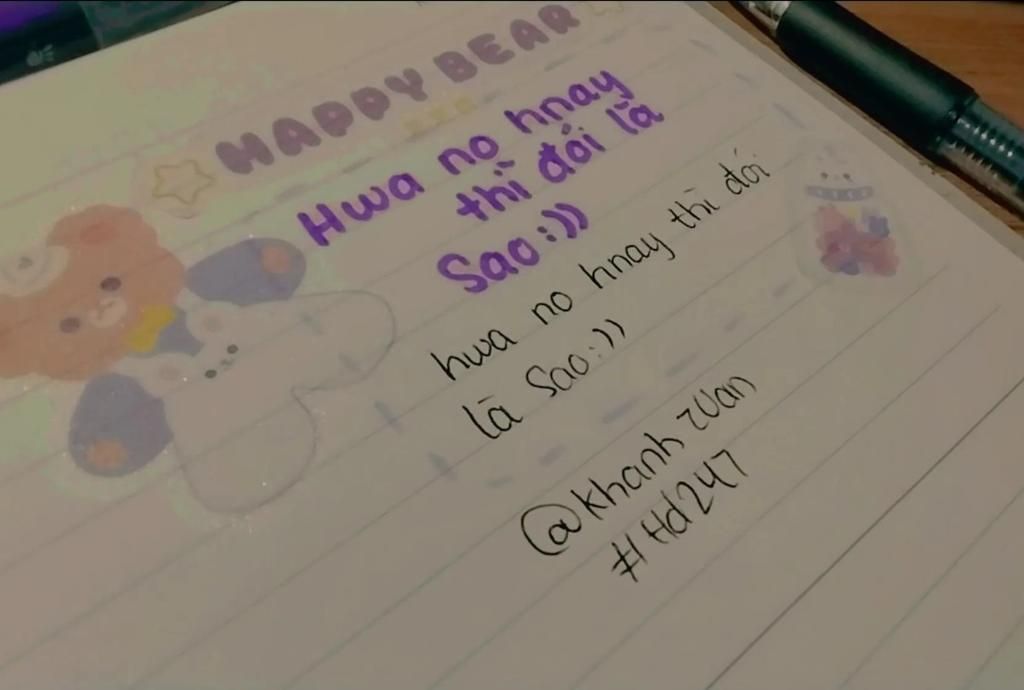 HAPPY BEAR
Hwa no hnay
thì đói là
Sao:))
hwa no hnay thì đói
là Sao:))
@khanh zuan
#Hd247